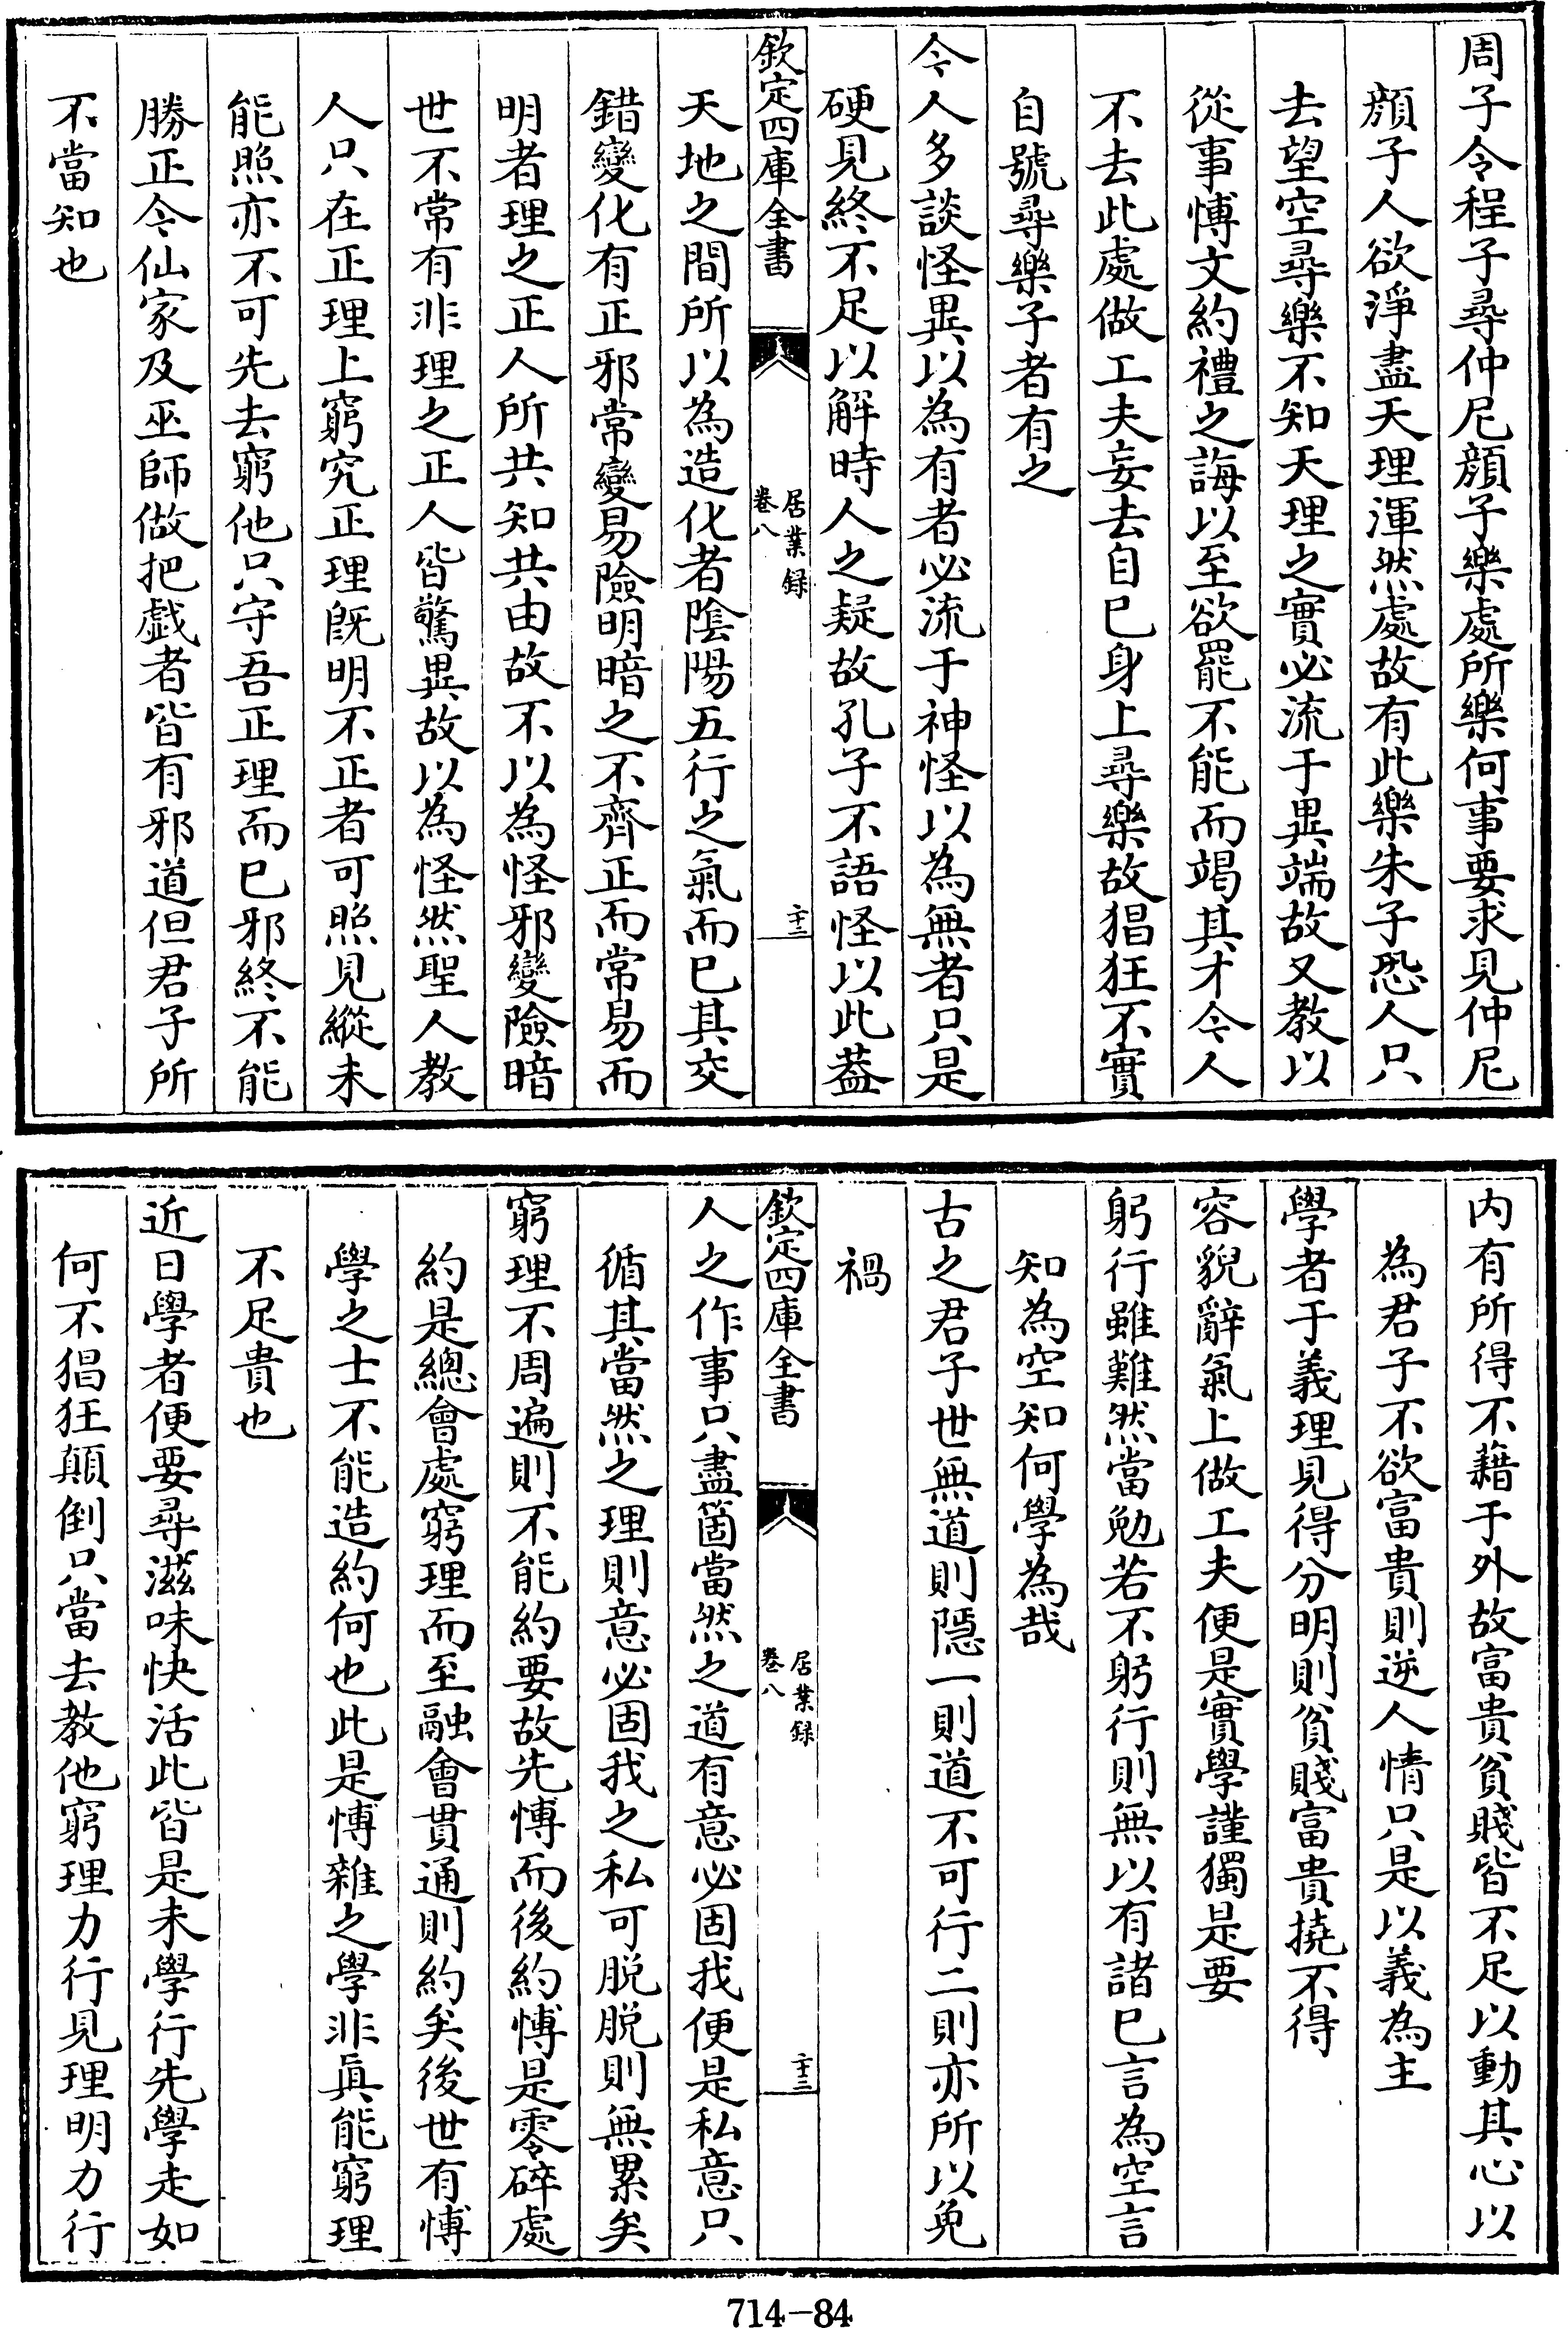 周子令程子尋仲尼顔子樂處所樂何事要求見仲尼
顔子人欲淨盡天理渾然處故有此樂朱子恐人只
去望空尋樂不知天理之實必流于異端故又教以
從事愽文約禮之誨以至欲罷不能而竭其才今人
不去此處做工夫妄去自已身上尋樂故猖狂不實
自號尋樂子者有之
今人多談怪異以為有者必流于神怪以為無者只是
硬見終不足以解時人之疑故孔子不語怪以此葢
欽定四庫全書
居業録
卷八
二十三
天地之間所以為造化者陰陽五行之氣而已其交
錯變化有正邪常變易險明暗之不齊正而常易而
明者理之正人所共知共由故不以為怪邪變險暗
世不常有非理之正人皆驚異故以為怪然聖人教
人只在正理上窮究正理旣明不正者可照見縱未
能照亦不可先去窮他只守吾正理而已邪終不能
勝正今仙家及巫師做把戯者皆有邪道但君子所
不當知也
内有所得不藉于外故富貴貧賤皆不足以動其心以
為君子不欲富貴則逆人情只是以義為主
學者于義理見得分明則貧賤富貴撓不得
容貌辭氣上做工夫便是實學謹獨是要
躬行雖難然當勉若不躬行則無以有諸已言為空言
知為空知何學為哉
古之君子世無道則隱一則道不可行二則亦所以免
禍
欽定四庫全書
居業録
卷八
二十三
人之作事只盡箇當然之道有意必固我便是私意只
循其當然之理則意必固我之私可脱脱則無累矣
窮理不周遍則不能約要故先愽而後約愽是零碎處
約是總會處窮理而至融會貫通則約矣後世有愽
學之士不能造約何也此是愽雜之學非眞能窮理
不足貴也
近日學者便要尋滋味快活此皆是未學行先學走如
何不猖狂顛倒只當去教他窮理力行見理明力行
714-84